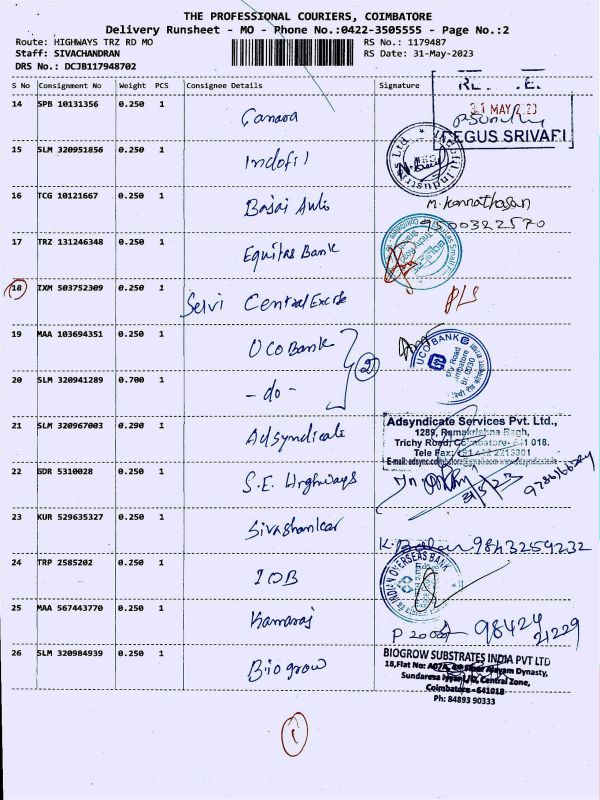 THE PROFESSIONAL COURIERS, COIMBATORE
Delivery Runsheet - MO - Phone No.:0422-3505555 - Page No.:2
Route: HIGHWAYS TRZ RD MO RS No.: 1179487
Staff: SIVACHANDRAN RS Date: 31-May-2023
DRS No.: DCJB117948702
S No Consignment No Weight PCS Consignee Details Signature
31 MAY 2023
14 SPB 10131356 0.250 1 Canara
REGUS SRIVARI
15 SLM 320951856 0.250 1 Indofil
Indofil Industries Ltd.
16 TCG 10121667 0.250 1 Bajaj Auto M. Kannathasan
9500322570
17 TRZ 131246348 0.250 1 Equitas Bank
18 IXM 503752309 0.250 1 Selvi Central Excise PLS
19 MAA 103694351 0.250 1 UCO Bank
UCO BANK
20 SLM 320941289 0.700 1 - do - 2
21 SLM 320967003 0.290 1 Adsyndicate
Adsyndicate Services Pvt. Ltd.,
1289, Ramakrishna Bagh,
Trichy Road, Coimbatore- 641 018.
22 GDR 5310028 0.250 1 S.E. Highways
31/5/23
23 KUR 529635327 0.250 1 Sivashankar
K. Balan 9843259232
24 TRP 2585202 0.250 1 IOB
INDIAN OVERSEAS BANK
25 MAA 567443770 0.250 1 Kamaraj
98424
21229
26 SLM 320984939 0.250 1 Biogrow
BIOGROW SUBSTRATES INDIA PVT LTD
18,Flat No: Dynasty,
Sundaresa Iyyer L/O, Central Zone,
Coimbatore - 641018
Ph: 84893 90333
1